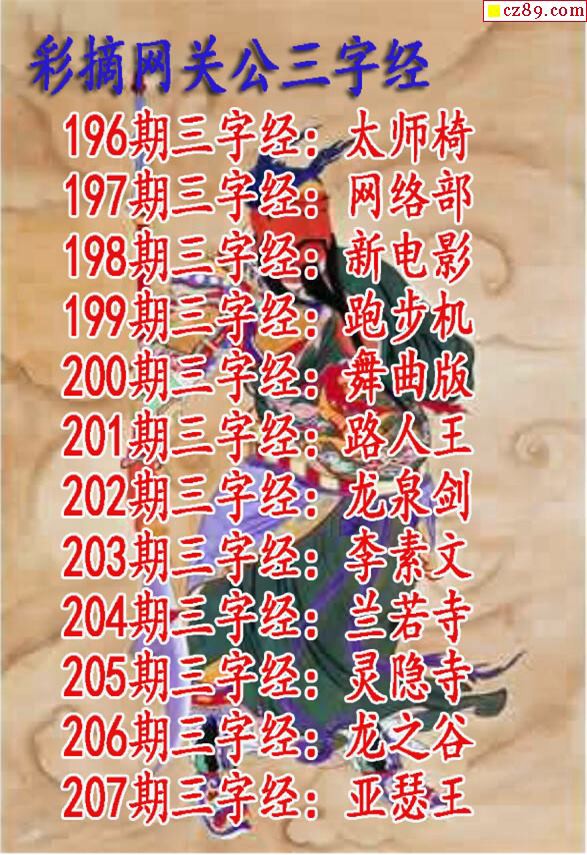 cz89.com
彩摘网关公三字经
196期三字经：太师椅
197期三字经：网络部
198期三字经：新电影
199期三字经：跑步机
200期三字经：舞曲版
201期三字经：路人王
202期三字经：龙泉剑
203期三字经：李素文
204期三字经：兰若寺
205期三字经：灵隐寺
206期三字经：龙之谷
207期三字经：亚瑟王